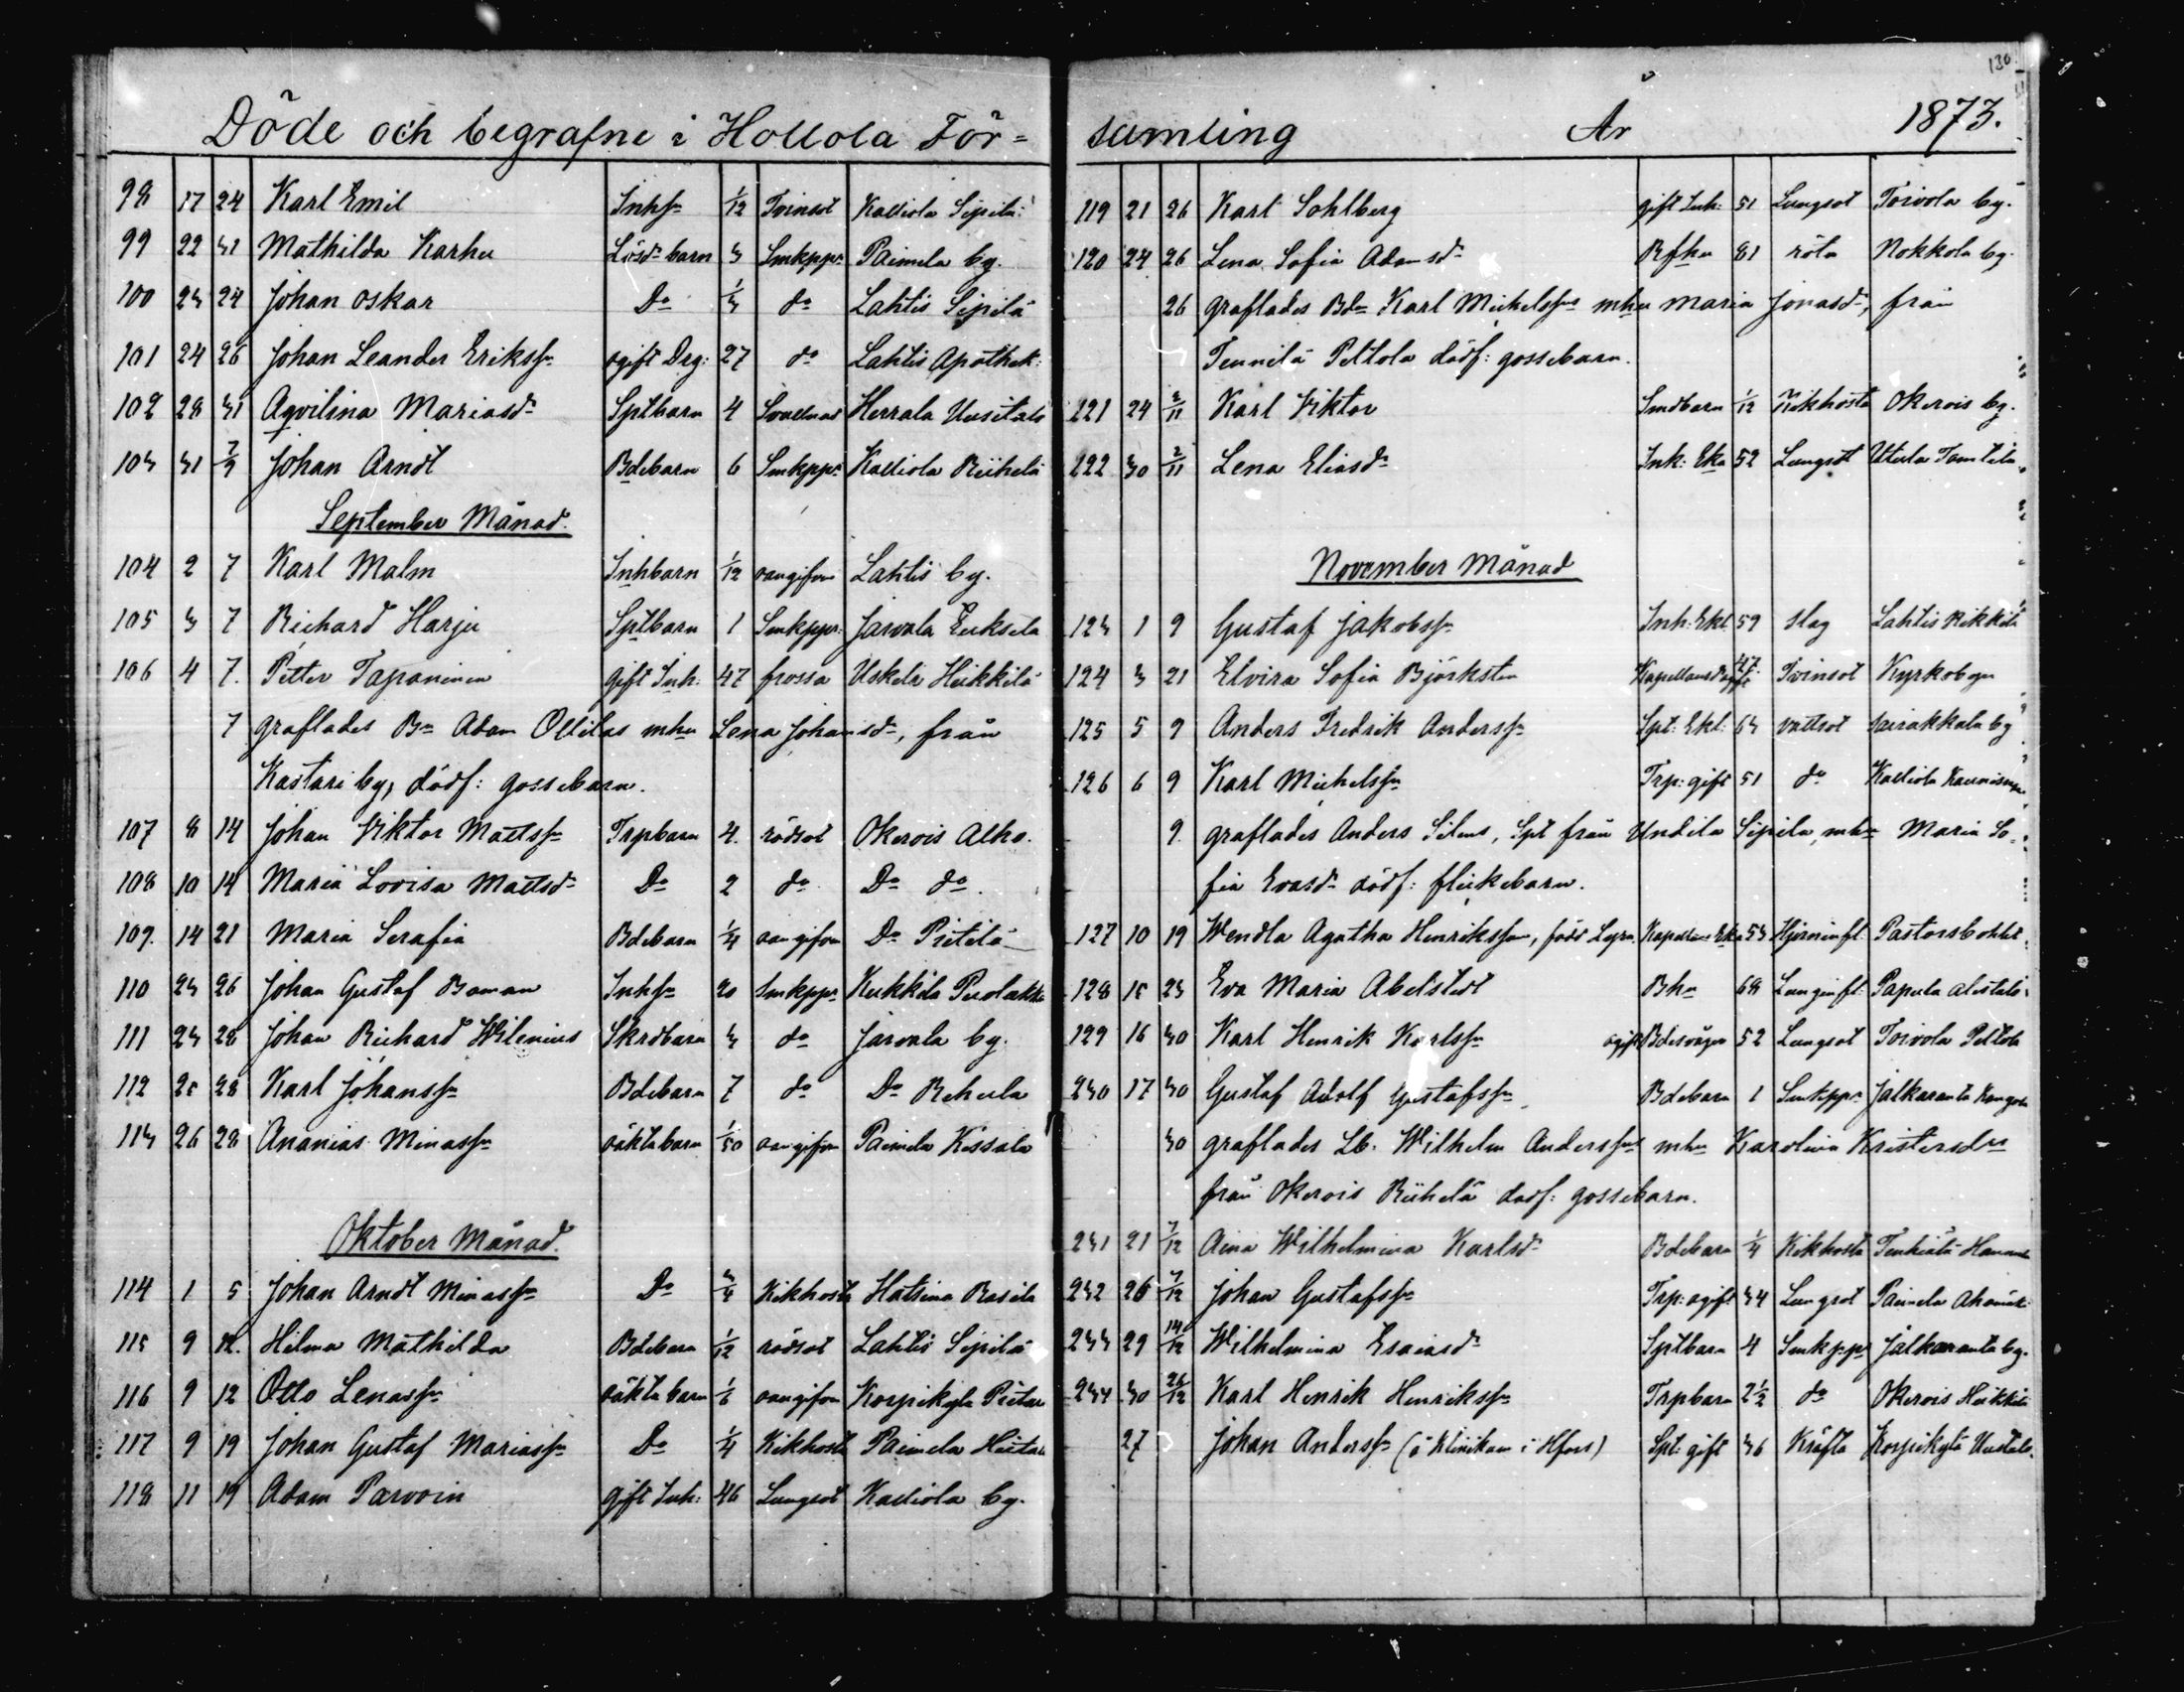 130
Döde och begrafne i Hollola För=
98 17 24 Karl Emil Inhsn 1/12 Tvinsot Kalliola Sipilä
99 22 31 Mathilda Karhu Lösd: barn 3 Smkppr Paimela by.
100 23 24 Johan Oskar Do 1/3 do Lahtis Sipilä
101 24 26 Johan Leander Erikssn ogift Drg: 27 do Lahtis Apothek:
102 28 31 Aqvilina Mariasdr Sptbarn 4 Herrala Uusitalo
103 31 7/9 Johan Arndt Bdebarn 6 Smkppr Kalliola Riihelä
September Månad.
104 2 7 Karl Malm Inhbarn 1/12 oangifven Lahtis by.
105 3 7 Richard Harju Sptbarn 1 Smkppr: Jarvala Eerksela
106 4 7. Petter Tapaninen gift Inh: 47 frossa Uskila Heikkilä
7 graflades Bn Adam Ollilas mhu Lena Johansdr, från
Kastari by, dödf: gossebarn.
107 8 14 Johan Viktor Mattssn Trpbarn 4. rödsot Okerois Alho.
108 10 14 Maria Lovisa Mattsdr Do 2 do Do do.
109. 14 21 Maria Serafia Bdebarn 1/4 oangifven Do Pietilä
110 23 26 Johan Gustaf Boman Inhsn 20 Smkppr Kukkila Puolakka
111 23 28 Johan Richard Wilenius Skrdbarn 3 do Jarvala by.
112 25 28 Karl Johanssn Bdebarn 7 do Do Rekula
113 26 28 Ananias Minassn oäkta barn 1/50 oangifven Paimela Kissala
Oktober Månad.
114 1 5 Johan Arndt Minassn Do 3/4 Kikhosta Hatsina Rasila
115 9 12. Hilma Mathilda Bdebarn 1/12 rödsot Lahtis Sipilä
116 9 12 Otto Lenassn oäkta barn 1/6 oangifven Korpikylä Pietari
117 9 19 Johan Gustaf Mariassn Do 1/4 Kikhosta Paimela Hietala
118 11 19 Adam Parvoin gift Inh: 46 Lungsot Kalliola by.
samling År 1873.
119 21 26 Karl Sohlberg gift Inh: 51 Lungsot Toivola by.
120 24 26 Lena Sofia Adamsdr Rfhu 81 röta Nokkola by.
26 graflades Bdn Karl Michelssns mhu Maria Jonasdr, från
Tennilä Peltola dödf: gossebarn.
221 24 2/11 Karl Viktor Smdbarn 1/12 Kikhosta Okerois by.
222 30 2/11 Lena Eliasdr Ink: Eka 52 Lungsot Utula Tomtila
November Månad
123 1 9 Gustaf Jakobssn Inh: Ekl 59 slag Lahtis Rikkilä
124 3 21 Elvira Sofia Björksten 47 Tvinsot Kyrkobyn
125 5 9 Anders Fredrik Anderssn Spt: Ekl: 63 vattsot Sairakkala by
126 6 9 Karl Michelssn Trp: gift 51 do Kalliola
9. graflades Anders Silens, Spt från Undila Sipila, mhu Maria So=
fia Evasdr dödf: flickebarn.
127 10 19 Wendla Agatha Henrikssen, född Kapellans Eka 53 Hjerninfl. Pastorsbohlet
128 15 23 Eva Maria Abelstedt Bhn 68 Lunginfl: Papula Alestalo
129 16 30 Karl Henrik Karlssn ogift Bdesvåger 52 Lungsot Toivola Peltola
230 17 30 Gustaf Adolf Gustafssn Bdebarn 1 Smkppr Jalkaranta
30 graflades Lb. Wilhelm Anderssns mhu Karolina Kristersdr
från Okerois Riihelä dödf: gossebarn.
231 21 7/12 Aina Wilhelmina Karlsdr Bdebarn 1/4 Kikhosta
232 26 7/12 Johan Gustafssn Trp: ogift 34 Lungsot Paimela
233 29 14/12 Wilhelmina Esaiasdr Sptbarn 4 Smkppr Jalkaranta by.
234 30 26/12 Karl Henrik Henrikssn Trpbarn 2 1/2 do Okerois Heikkilä
27 Johan Anderssn (å Klinikum i Hfors) Spt: gift 36 Kräfta Korpikylä Uustalo.